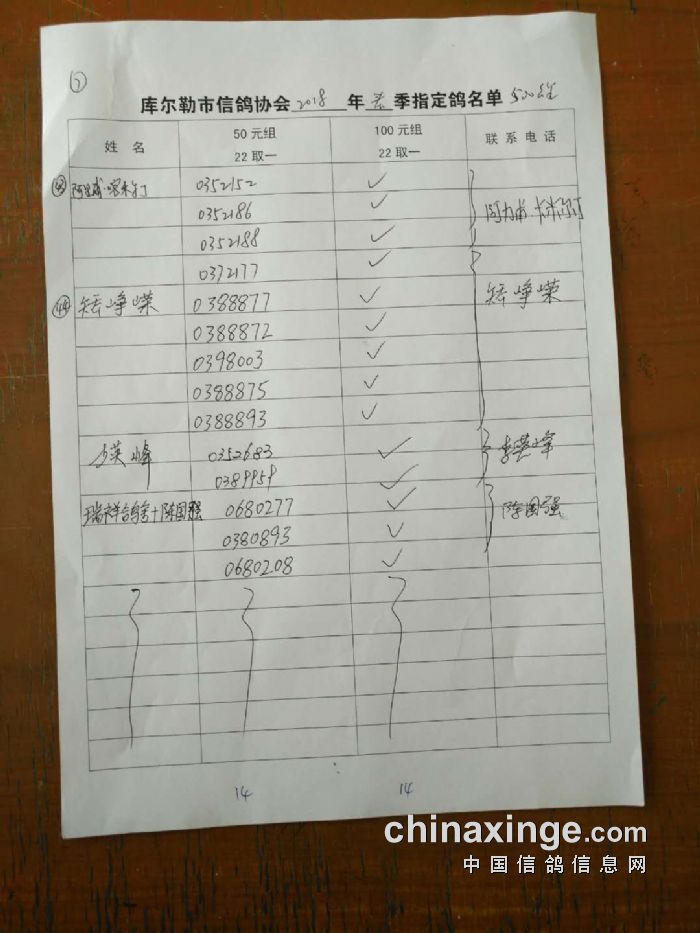 ⑦
库尔勒市信鸽协会 2018 年 春 季指定鸽名单 500公里
姓 名 50元组 22取一 100元组 22取一 联系电话
0352152 ✓
0352186 ✓
0352188 ✓
0372177 ✓
㊹ 嵘 0388877 ✓ 峥嵘
0388872 ✓
0398003 ✓
0388875 ✓
0388893 ✓
李英峰 0352683 ✓ 李英峰
0389959 ✓
瑞祥鸽舍+陈国强 0680277 ✓ 陈国强
0380893 ✓
0680208 ✓
14 14
chinaxinge.com
中国信鸽信息网